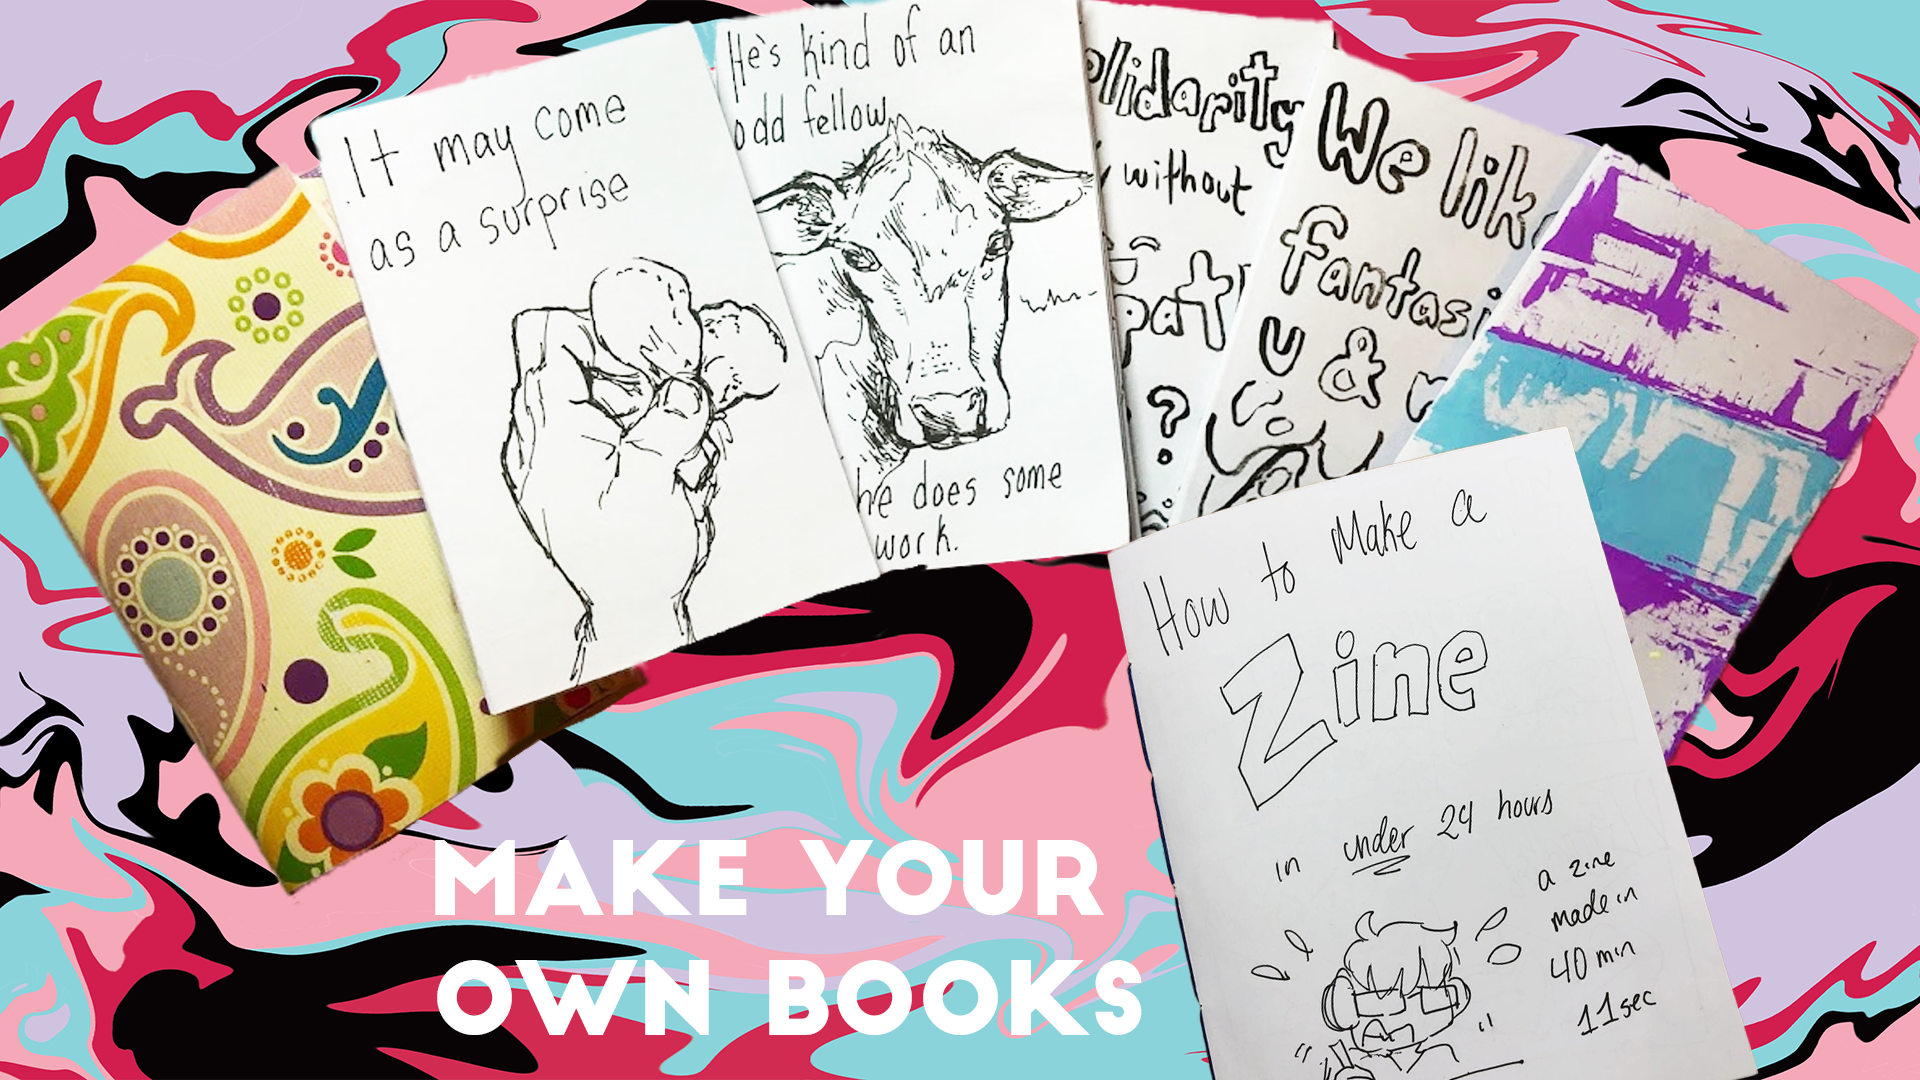 It may come
as a surprise
He's kind of an
odd fellow
he does some
work.
without
?
We
fantasi
U &
How to Make a
Zine
in under 24 hours
a zine
made in
40 min
11sec
MAKE YOUR
OWN BOOKS